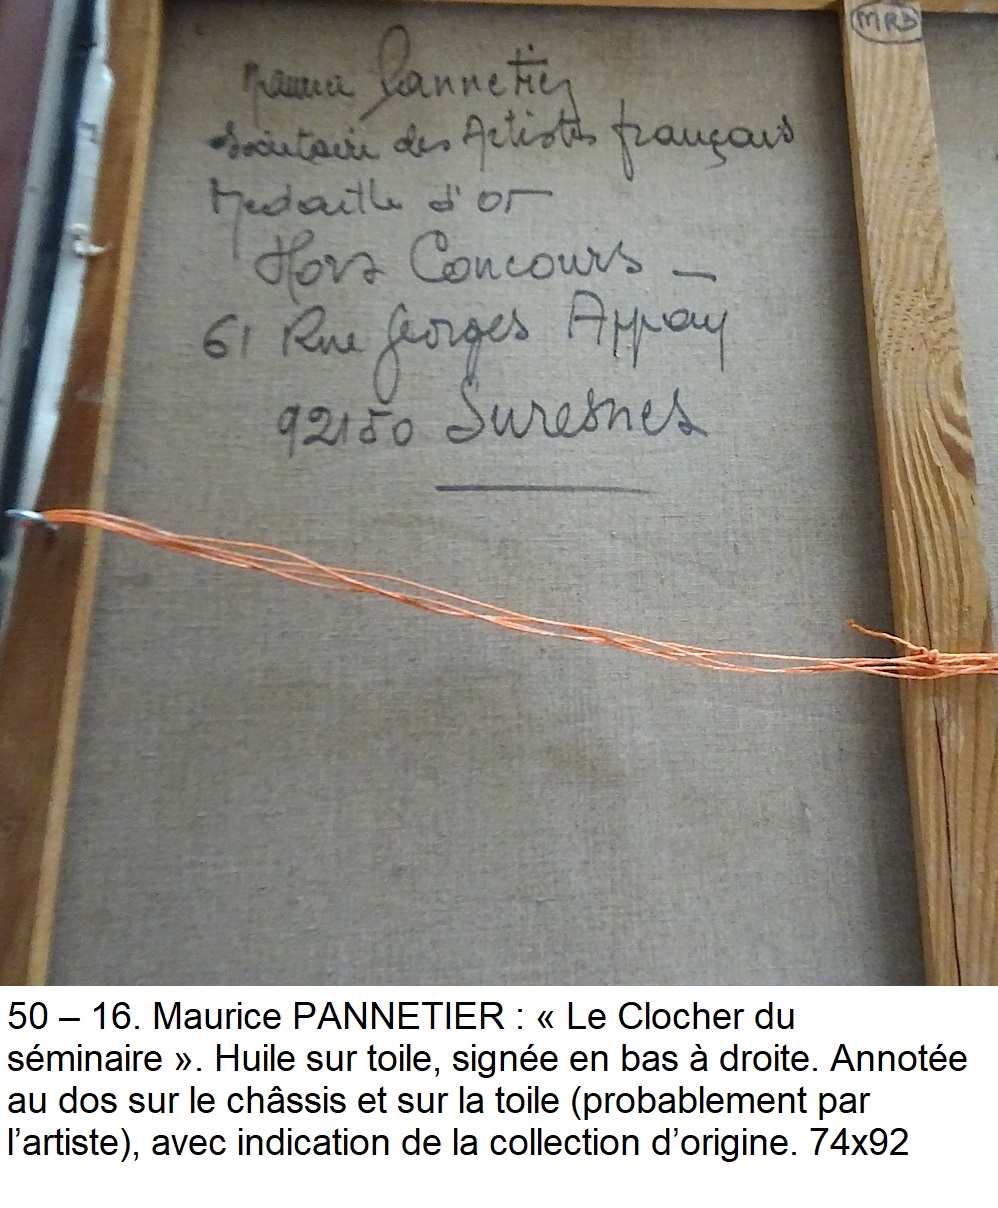 MRB
Maurice Pannetier
Sociétaire des Artistes français
Medaille d'or
Hors Concours _
61 Rue Georges Appay
92150 Suresnes
50 – 16. Maurice PANNETIER : « Le Clocher du
séminaire ». Huile sur toile, signée en bas à droite. Annotée
au dos sur le châssis et sur la toile (probablement par
l’artiste), avec indication de la collection d’origine. 74x92